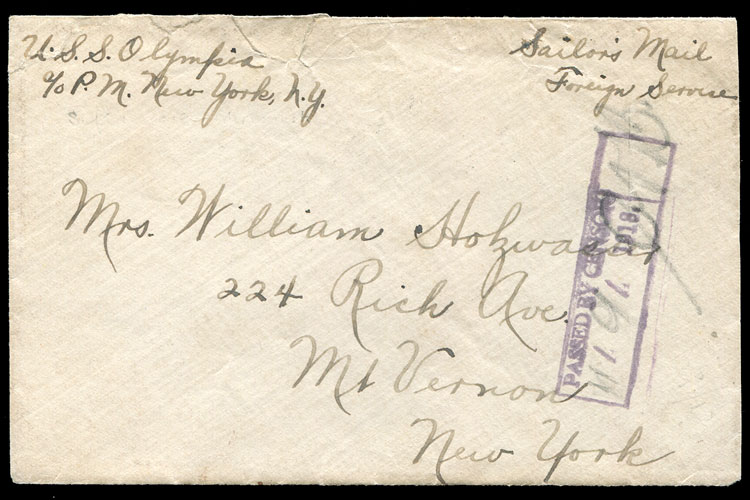 U.S.S. Olympia
c/o P. M. New York, N.Y.
Sailor's Mail
Foreign Service
PASSED BY CENSOR
1918.
Mrs. William Holzwasser
224 Rich Ave.
Mt Vernon
New York